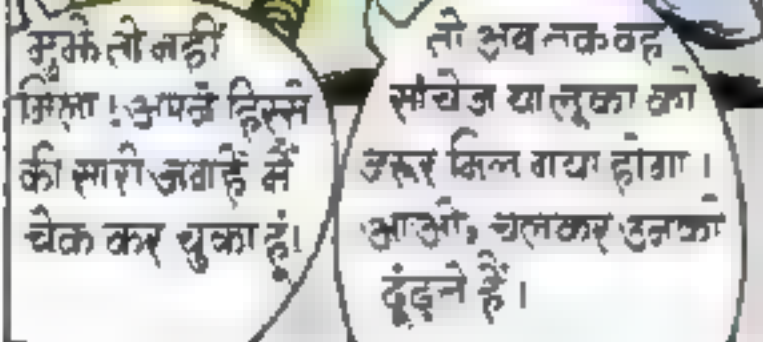 मुझे तो नहीं
मिला! अपने हिस्से
की सारी जगहें मैं
चेक कर चुका हूं।
तो अब तक वह
सांचेज या लूका को
जरूर मिल गया होगा।
आओ, चलकर उनको
ढूंढ्ते हैं।